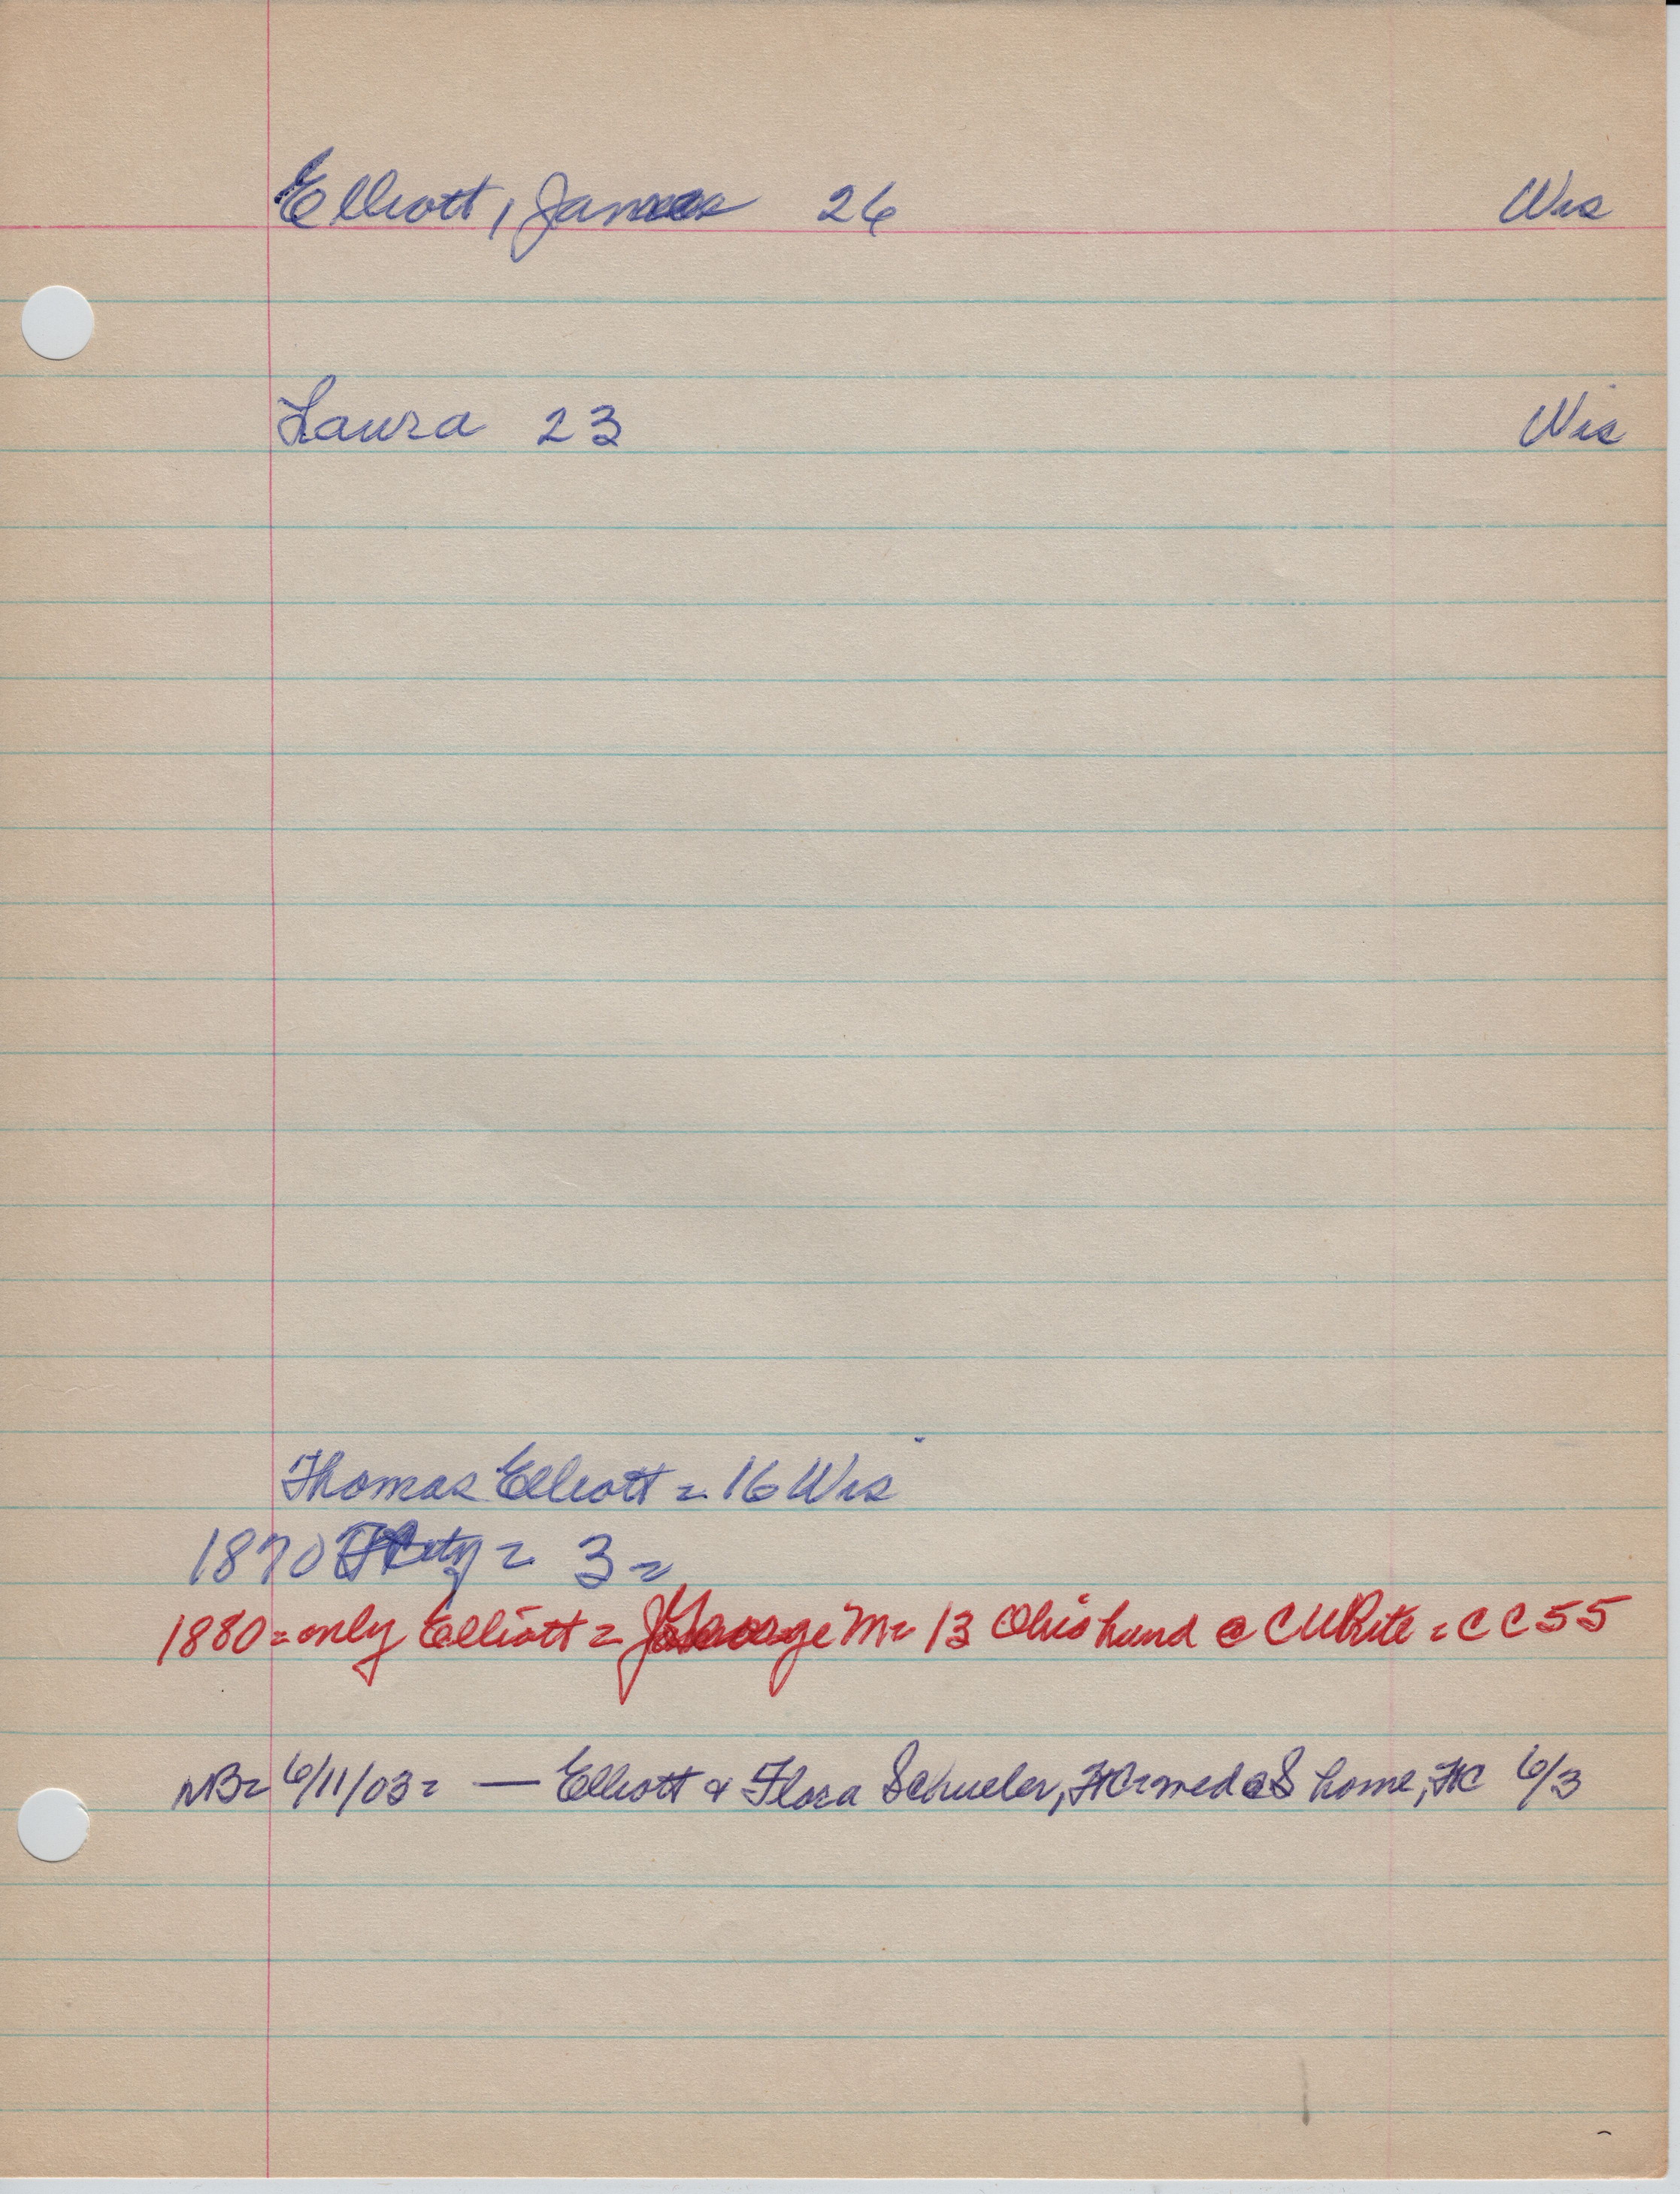 Elliott, James 26 Wis
Laura 23 Wis
Thomas Elliott = 16 Wis
1870 = 3 =
1880 = only Elliott = George M = 13 Ohio hand @ C White = CC 55
NB = 6/11/03 = — Elliott & Flora Schueler, FC = med @ S home, FC 6/3